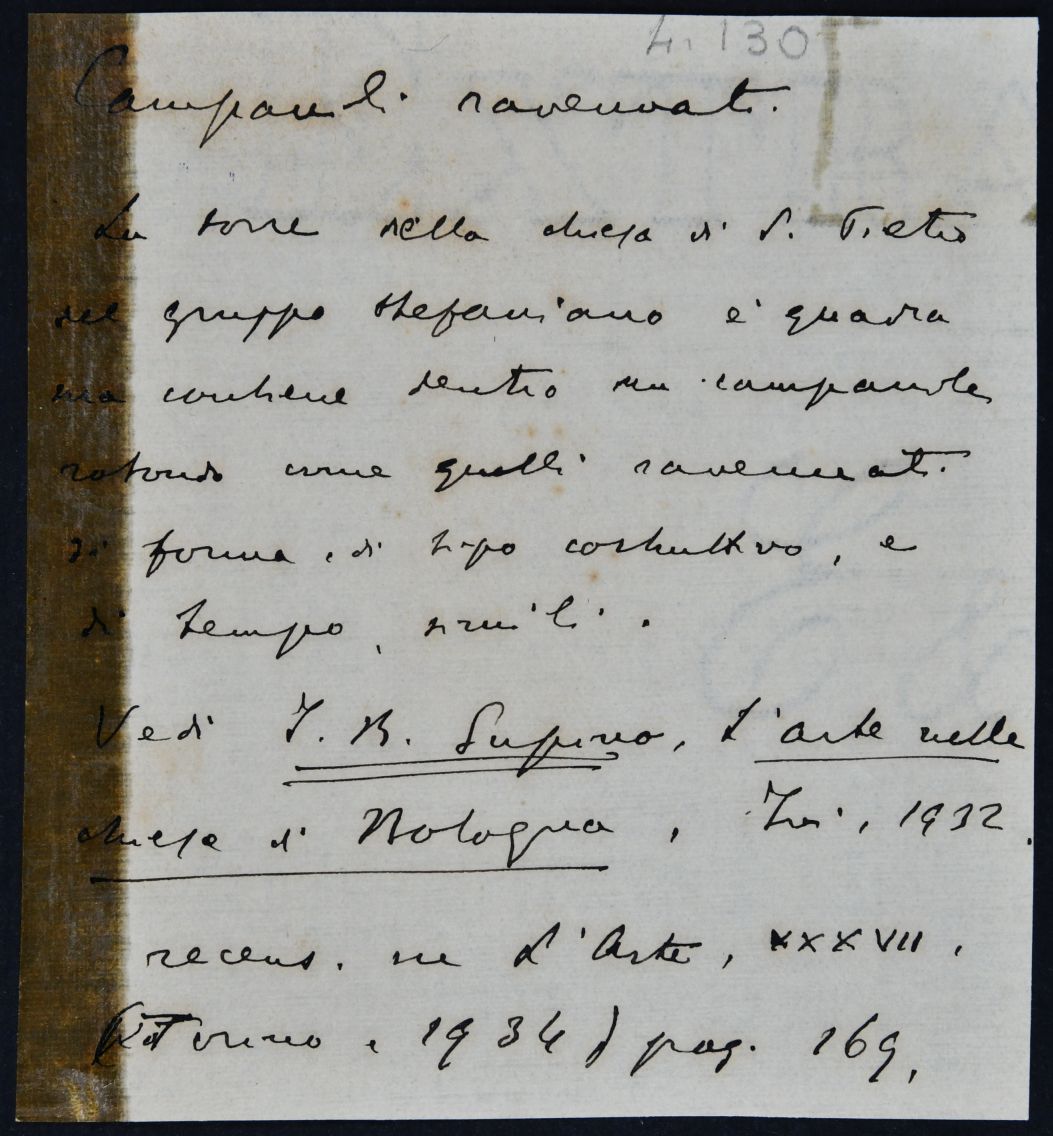 4. 130
Campanili ravennati.
La torre della chiesa di S. Pietro
nel gruppo stefaniano è quadra
ma contiene dentro un campanile
rotondo come quelli ravennati
di forma, di tipo costruttivo, e
di tempo, simili.
Vedi I. B. Supino, L'arte nelle
chiese di Bologna, Ivi, 1932.
recens. in L'Arte, XXXVII,
(Torino, 1934) pag. 169.